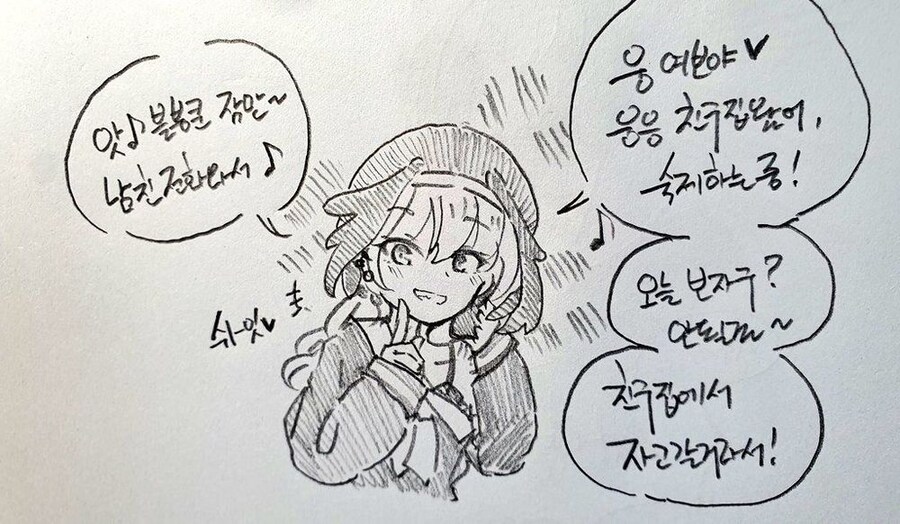 앗♪ 볼봉쿤 잠만~
남친전화와서 ♪
쉬-잇♥
웅 여보야♥
웅웅 친구집왔어,
숙제하는중!
오늘 보자구?
안되는데~
친구집에서
자고갈거라서!